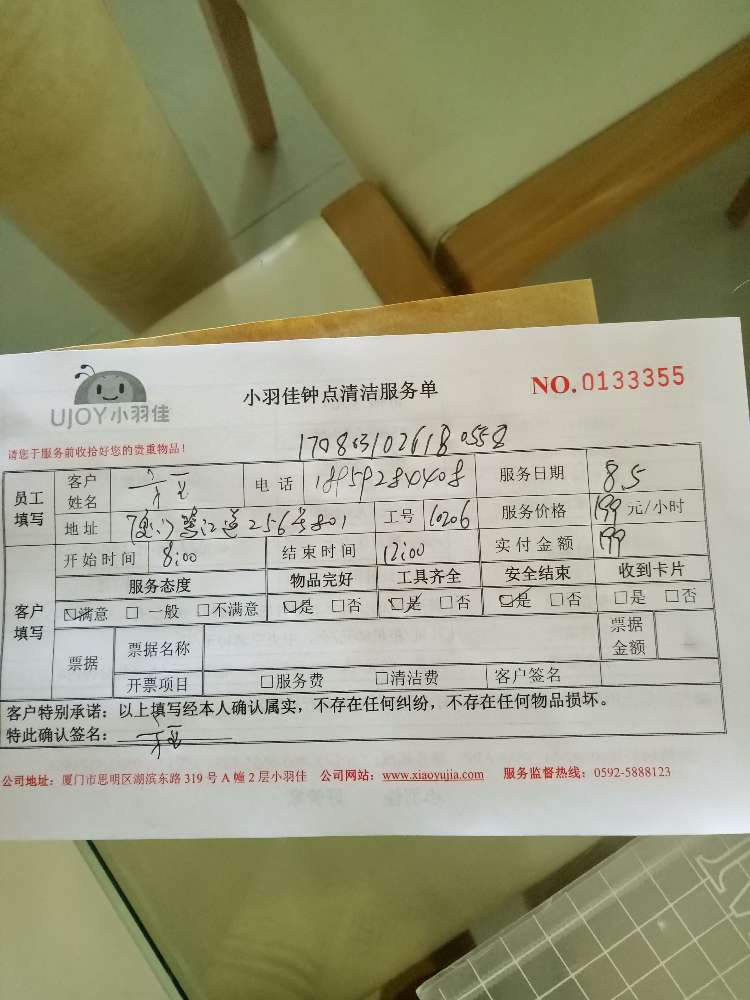 UJOY小羽佳
小羽佳钟点清洁服务单
NO.0133355
请您于服务前收拾好您的贵重物品！
员工填写
客户姓名
电话
服务日期 8.5
地址 256号801
工号 10206
服务价格 199元/小时
客户填写
开始时间 8:00
结束时间 12:00
实付金额 199
服务态度 物品完好 工具齐全 安全结束 收到卡片
☑满意 □一般 □不满意 ☑是 □否 ☑是 □否 ☑是 □否 □是 □否
票据
票据名称
票据金额
开票项目 □服务费 □清洁费 客户签名
客户特别承诺：以上填写经本人确认属实，不存在任何纠纷，不存在任何物品损坏。
特此确认签名：
公司地址：厦门市思明区湖滨东路 319 号 A 幢 2 层小羽佳 公司网站：www.xiaoyujia.com 服务监督热线：0592-5888123